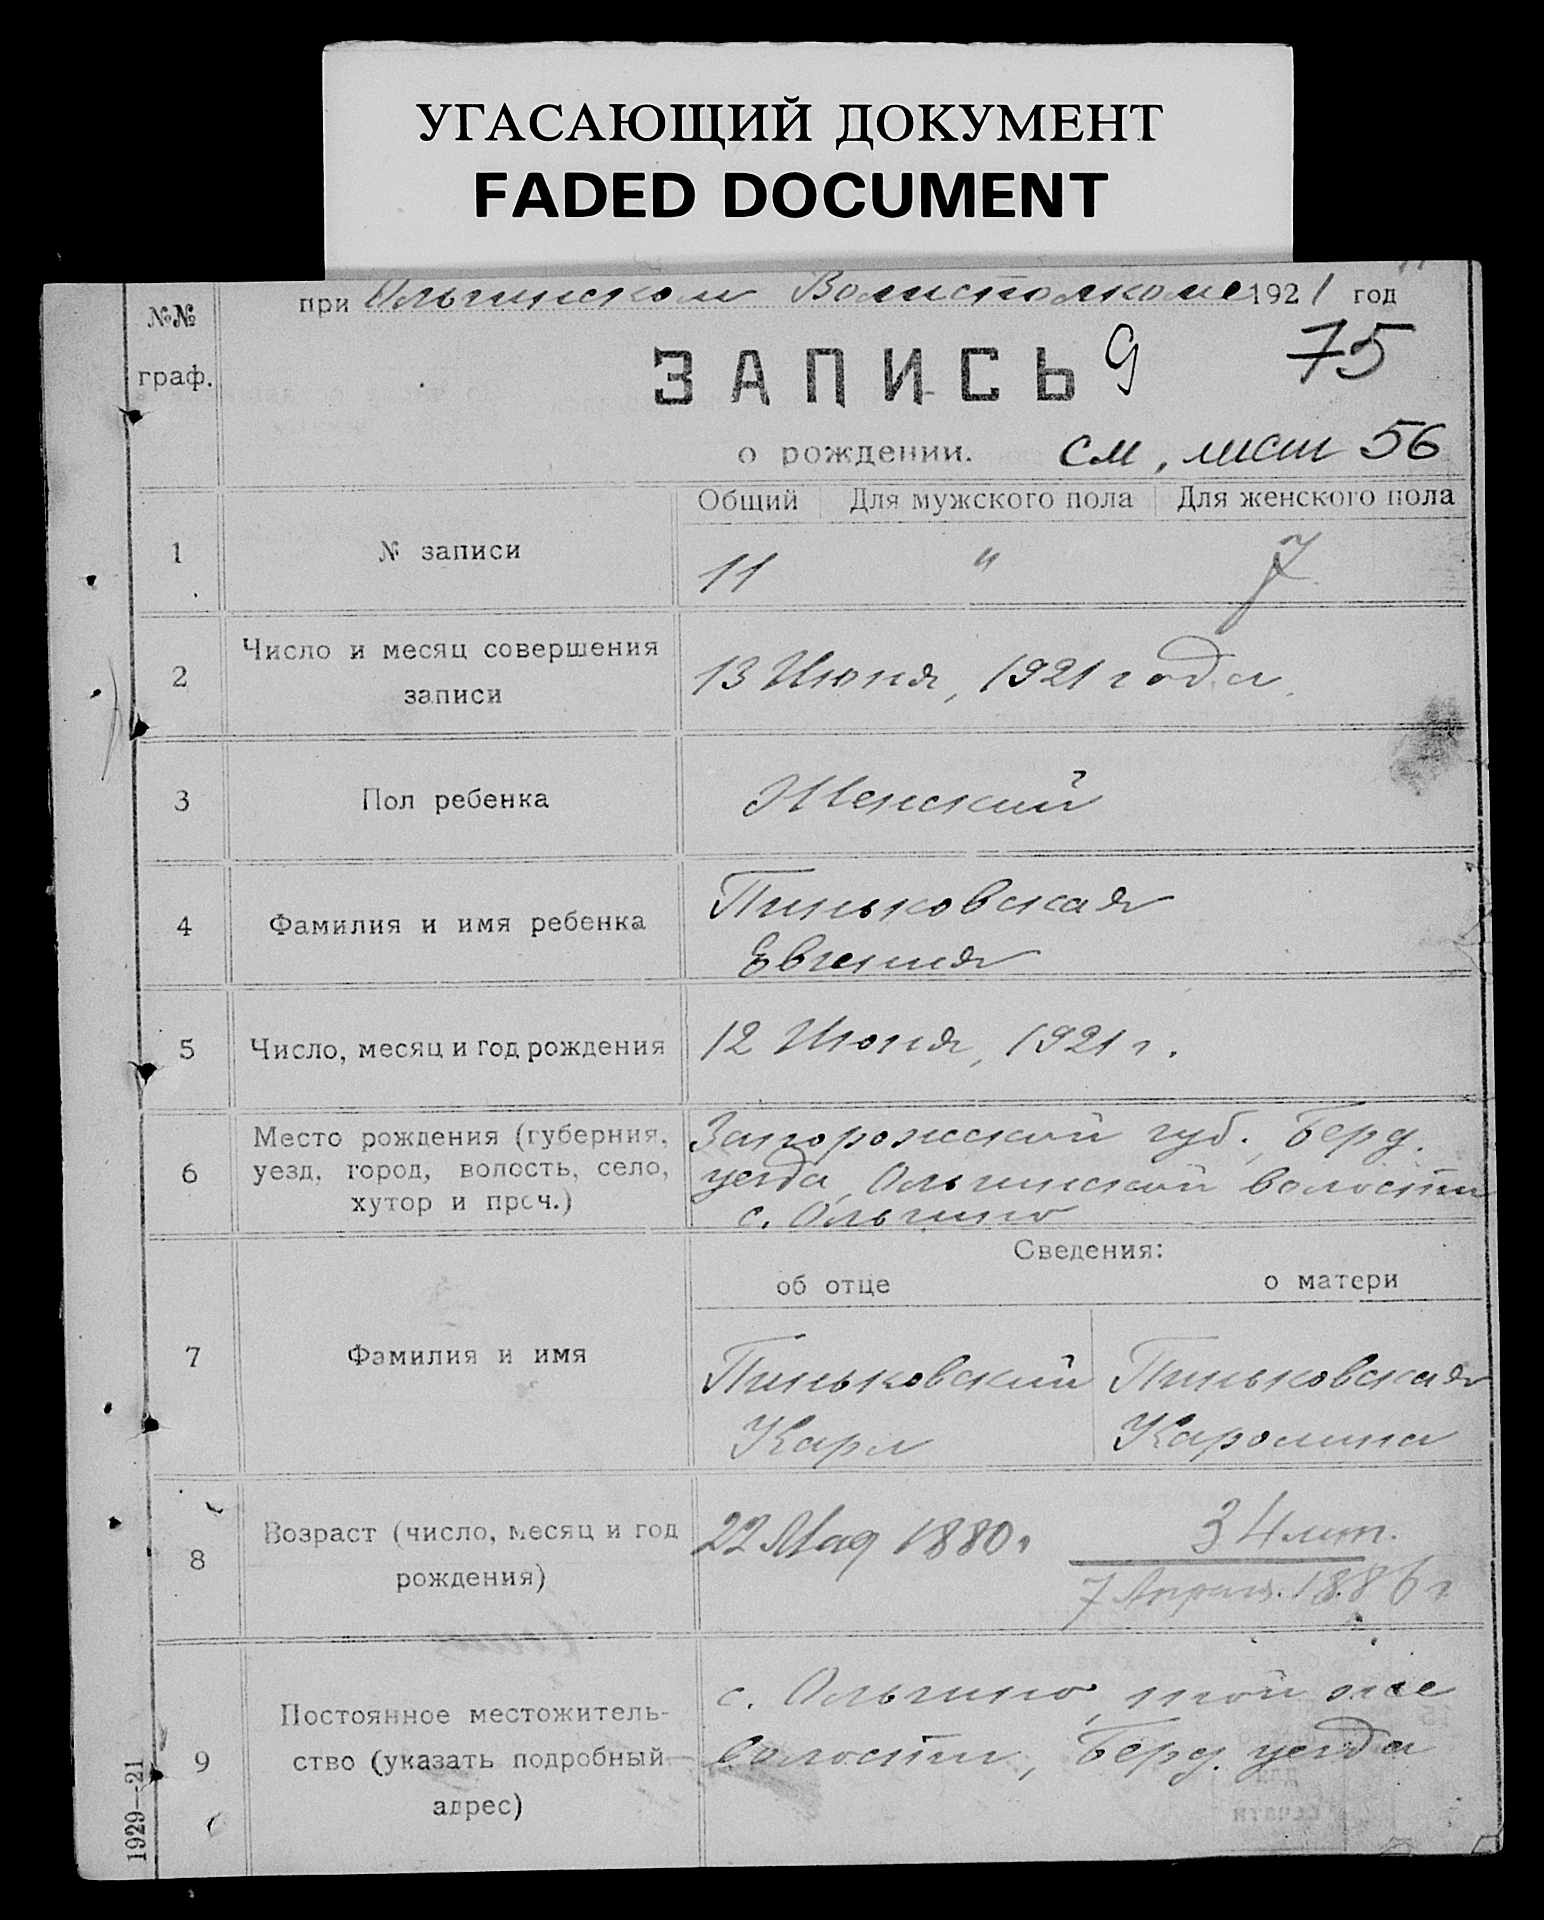 УГАСАЮЩИЙ ДОКУМЕНТ
FADED DOCUMENT
при Ольгинском Волисполкоме 1921 год
№№
граф.
ЗАПИСЬ 9 75
о рождении. см. лист 56
Общий Для мужского пола Для женского пола
1 № записи 11 " 7
2 Число и месяц совершения
записи
13 Июня, 1921 года
3 Пол ребенка Женский
4 Фамилия и имя ребенка
Пиньковская
Евгения
5 Число, месяц и год рождения 12 Июня, 1921 г.
6 Место рождения (губерния,
уезд, город, волость, село,
хутор и проч.)
Запорожской губ. Берд.
уезда, Ольгинской волости
с. Ольгино
Сведения:
об отце о матери
7 Фамилия и имя
Пиньковский
Карл
Пиньковская
Каролина
8 Возраст (число, месяц и год
рождения)
22 Мая 1880.
34 лет.
7 Апреля. 1886 г
9 Постоянное местожитель-
ство (указать подробный
адрес)
с. Ольгино, той же
волости, Берд. уезда
1929—21